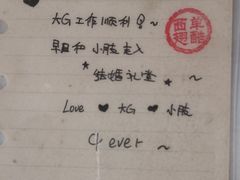 大G工作顺利!~
早日和小陈走入
*结婚礼堂*
~
Love ♥ 大G ♥ 小陈
4 ever ~
西单
翅酷